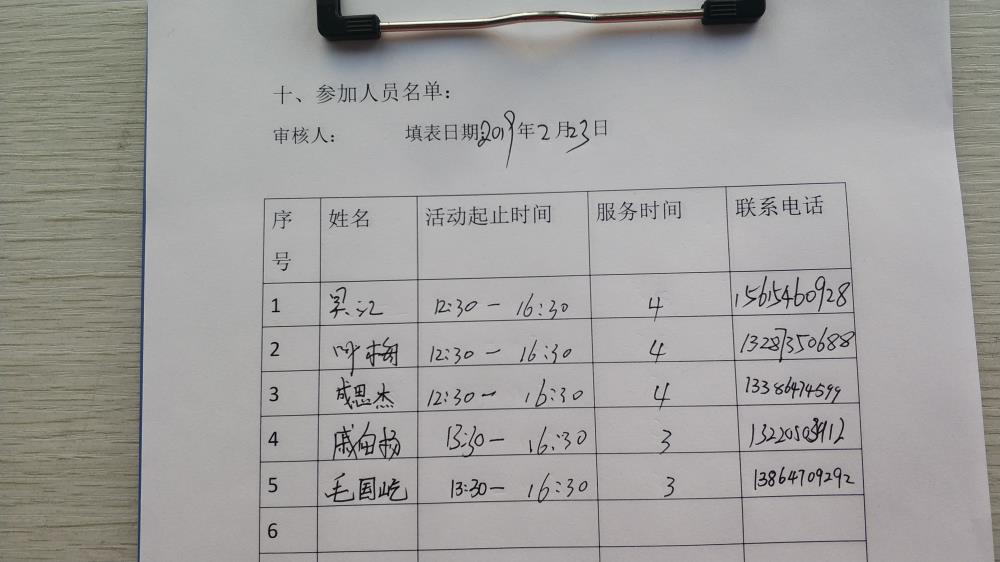 十、参加人员名单:
审核人: 填表日期:2019年2月23日
序号 姓名 活动起止时间 服务时间 联系电话
1 吴江 12:30一16:30 4 15615460928
2 叶梅 12:30一16:30 4 13287350688
3 成思杰 12:30一16:30 4 13386474599
4 戚向杨 13:30一16:30 3
5 毛国屹 13:30一16:30 3 13864709292
6